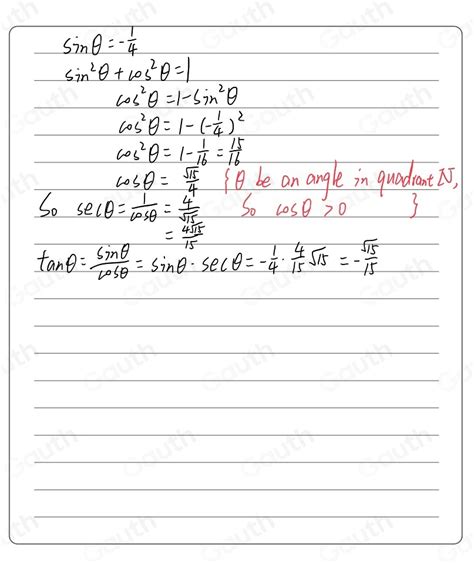 sinθ = -1/4
sin²θ + cos²θ = 1
cos²θ = 1 - sin²θ
cos²θ = 1 - (-1/4)²
cos²θ = 1 - 1/16 = 15/16
cosθ = √15/4 {θ be an angle in quadrant IV,
So secθ = 1/cosθ = 4/√15 So cosθ > 0 }
= 4√15/15
tanθ = sinθ/cosθ = sinθ · secθ = -1/4 · 4/15 √15 = -√15/15